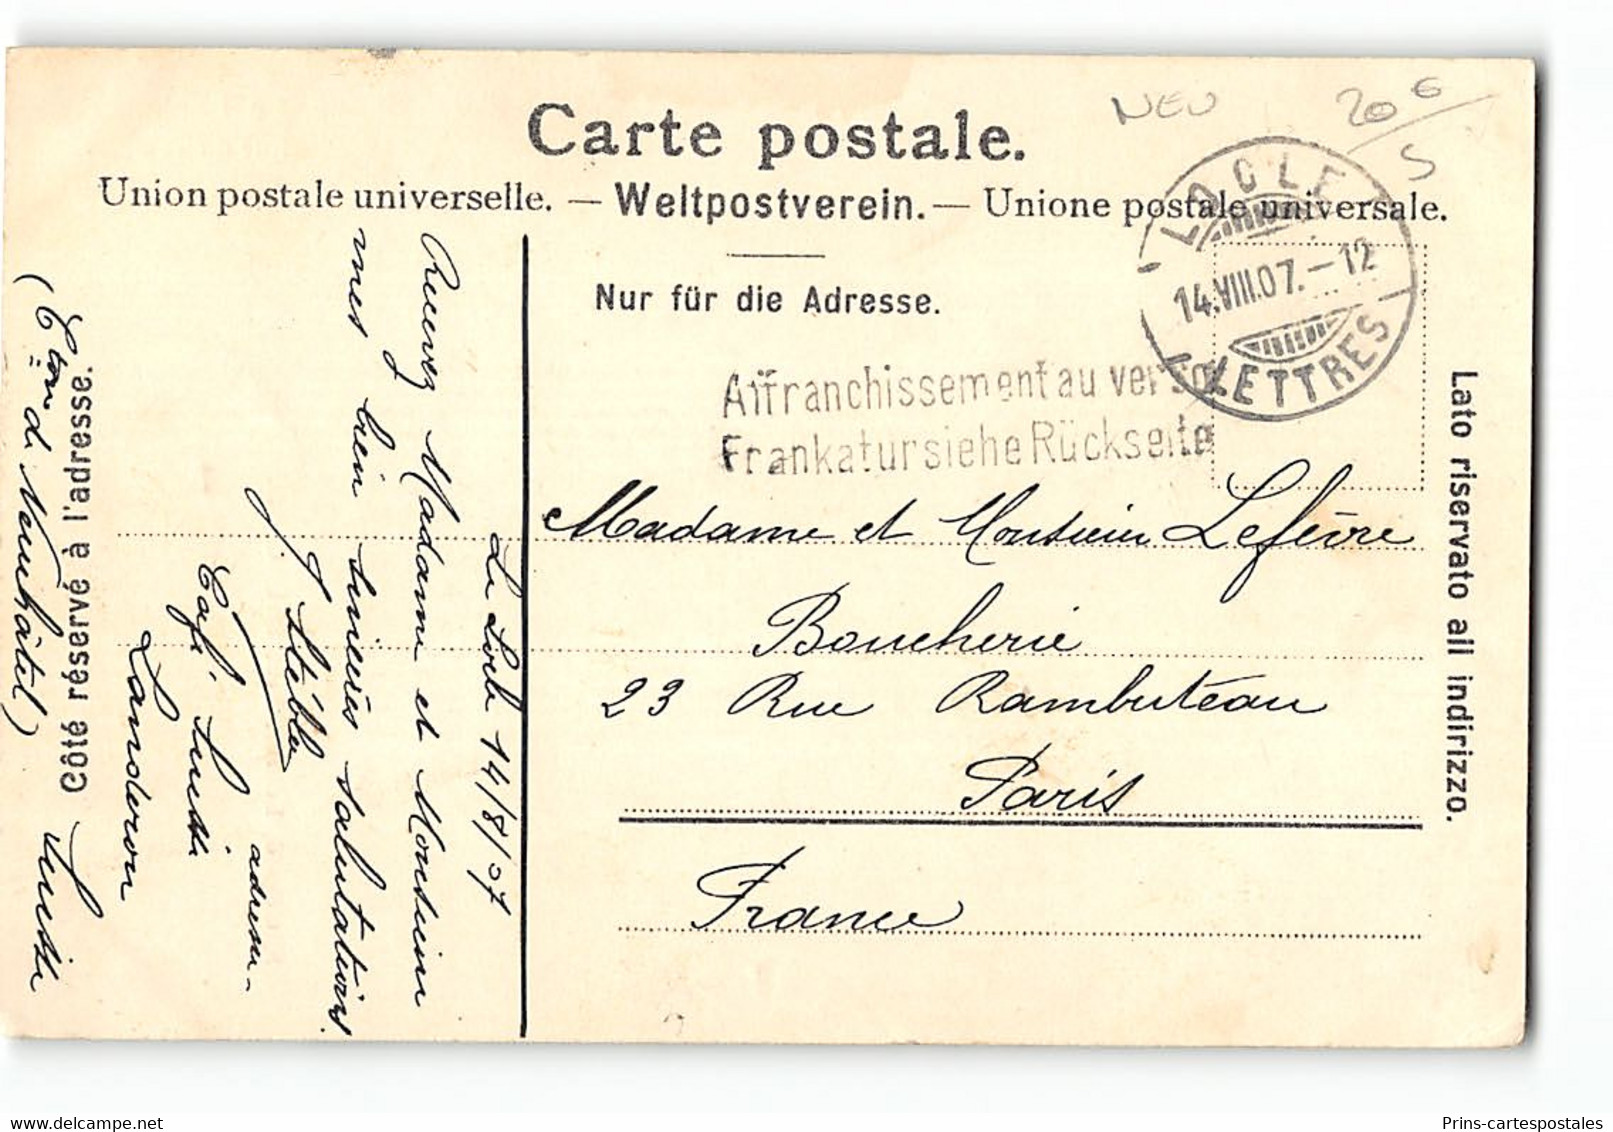 NEU
20 €
5
Carte postale.
Union postale universelle. — Weltpostverein. — Unione postale universale.
Nur für die Adresse.
LOCLE
14.VIII.07.–12
LETTRES
Affranchissement au verso
Frankatur siehe Rückseite
Madame et Monsieur Lefèvre
Boucherie
23 Rue Rambuteau
Paris
France
Lato riservato all indirizzo.
Côté réservé à l'adresse.
Le Locle 14/8/07
Recevez Madame et Monsieur
mes bien sincères salutations.
adresse
Café Suisse
Landeron
(Cton de Neuchâtel) Suisse
Prins-cartespostales